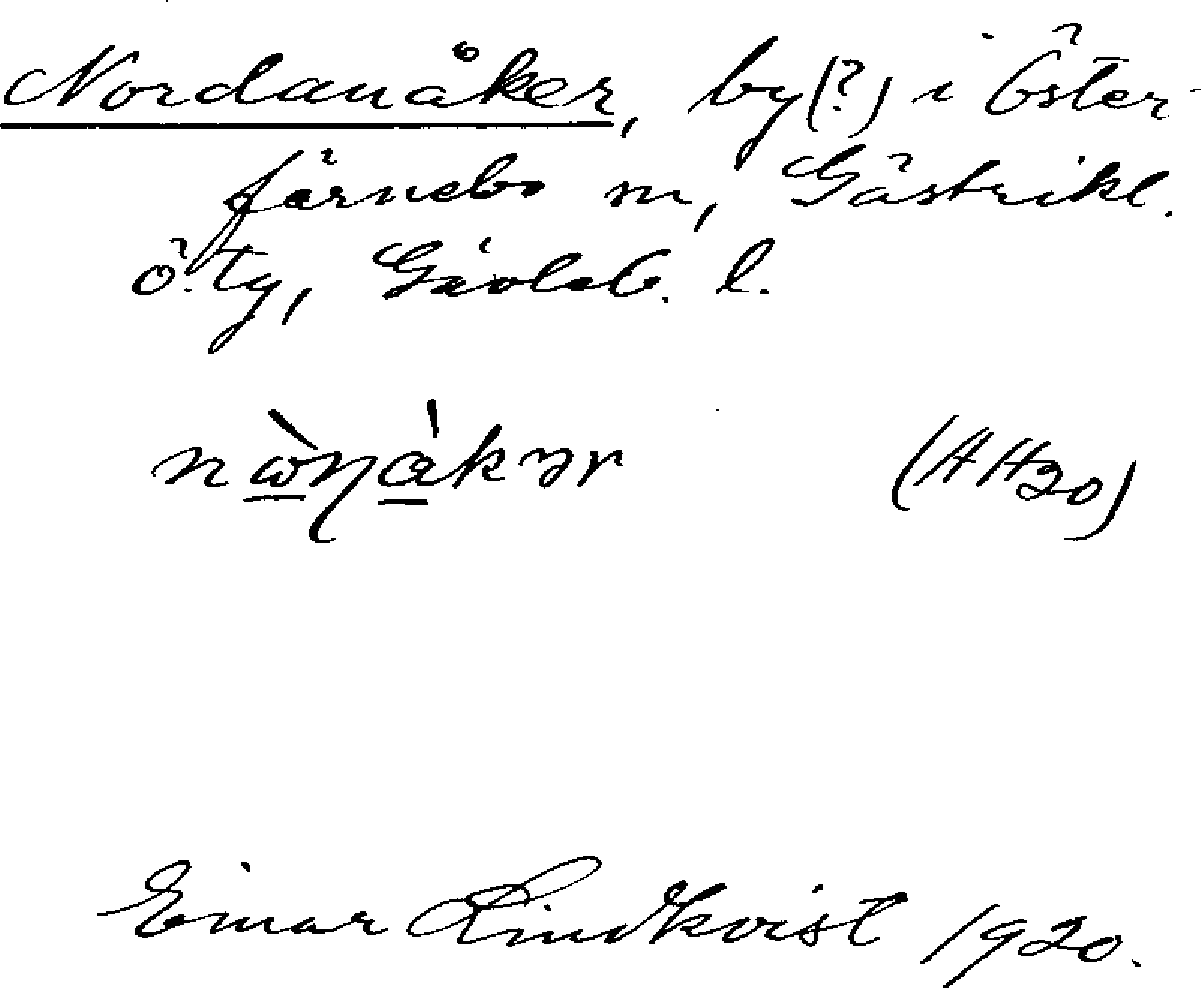 Nordanåker, by(?) i Öster-
färnebo sn, Gästrikl.
ö. tg, Gävleb. l.
nὼ̱ɳὰ̱kər (AH20)
Einar Lindkvist 1920.